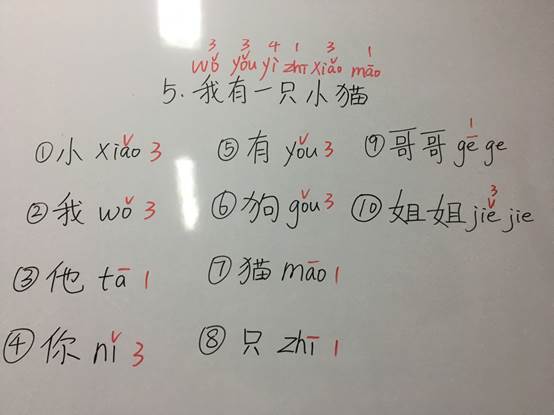 3 3 4 1 3 1
wǒ yǒu yì zhī xiǎo māo
5. 我有一只小猫
①小 xiǎo 3 ⑤有 yǒu 3 ⑨哥哥 gē ge 1
②我 wǒ 3 ⑥狗 gǒu 3 ⑩姐姐 jiě jie 3
③他 tā 1 ⑦猫 māo 1
④你 nǐ 3 ⑧只 zhī 1